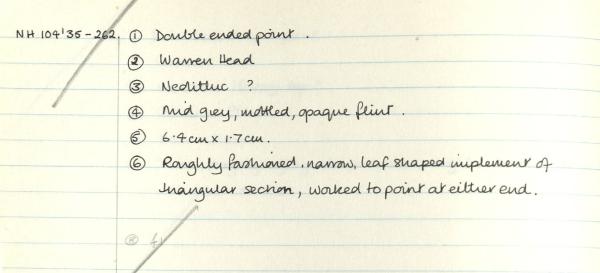 NH 104'35-262. ① Double ended point.
② Warren Head
③ Neolithic ?
④ Mid grey, mottled, opaque flint.
⑤ 6.4cm x 1.7cm.
⑥ Roughly fashioned, narrow, leaf shaped implement of
triangular section, worked to point at either end.